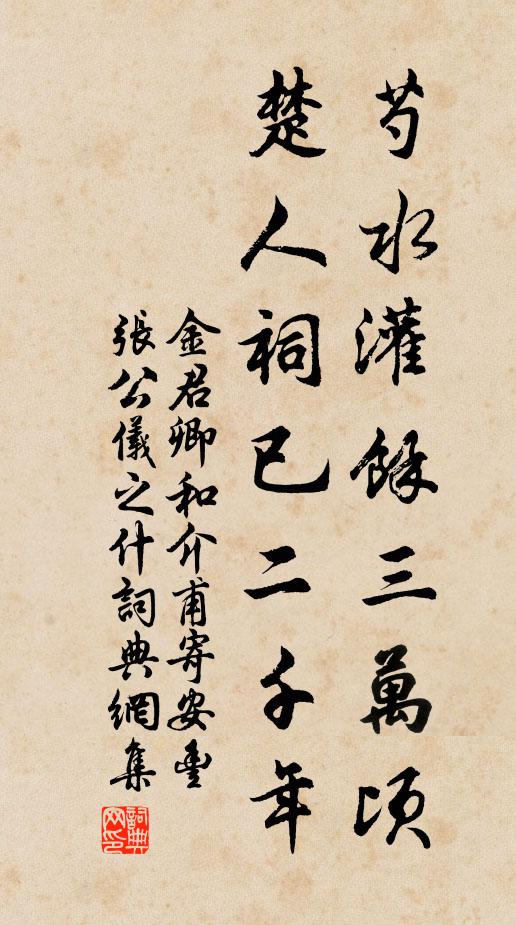 芍水灌餘三萬頃
楚人祠已二千年
金君卿和介甫寄安豐
張公儀之什詞典網集
詞典网印